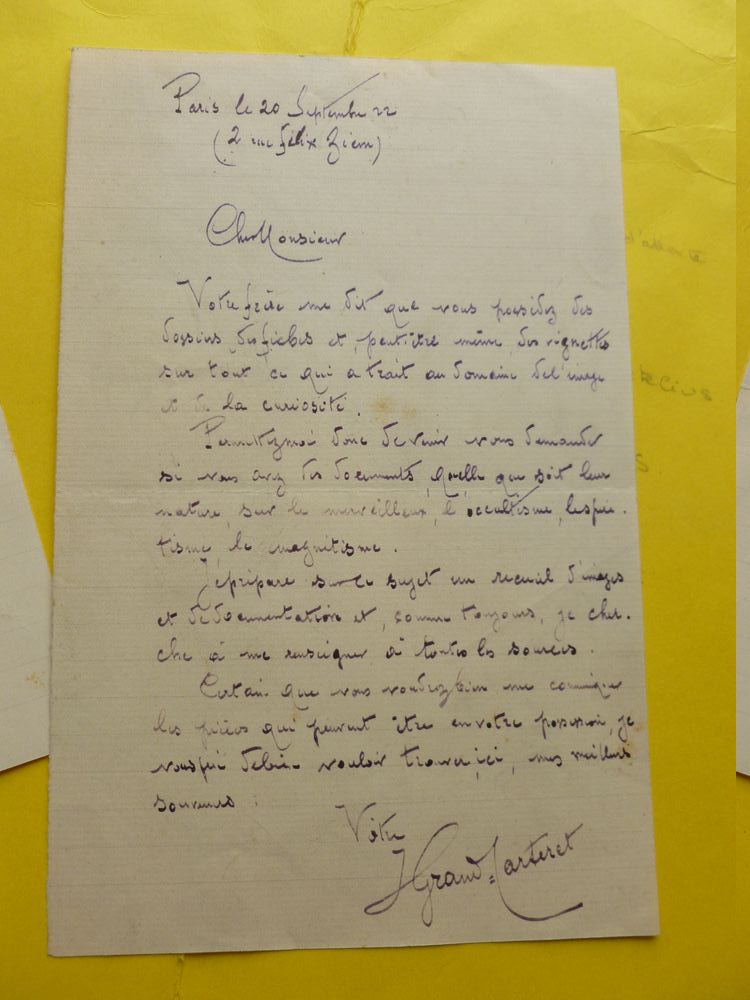 Paris le 20 Septembre 22
(2 rue Félix Ziem)
Cher Monsieur
Votre frère me dit que vous possédez des
dossiers, des fiches et, peut-être même, des vignettes
sur tout ce qui a trait au domaine de l'image
et de la curiosité.
Permettez moi donc de venir vous demander
si vous avez des documents, quelle que soit leur
nature, sur le merveilleux, l'occultisme, le spiri-
tisme, le magnétisme.
Je prépare sur ce sujet un recueil d'images
et de documentation et, comme toujours, je cher-
che à me renseigner à toutes les sources.
Certain que vous voudrez bien me
les pièces qui peuvent être en votre possession, je
vous prie de bien vouloir trouver, ici, mes meilleurs
souvenirs.
Votre
J Grand-Carteret